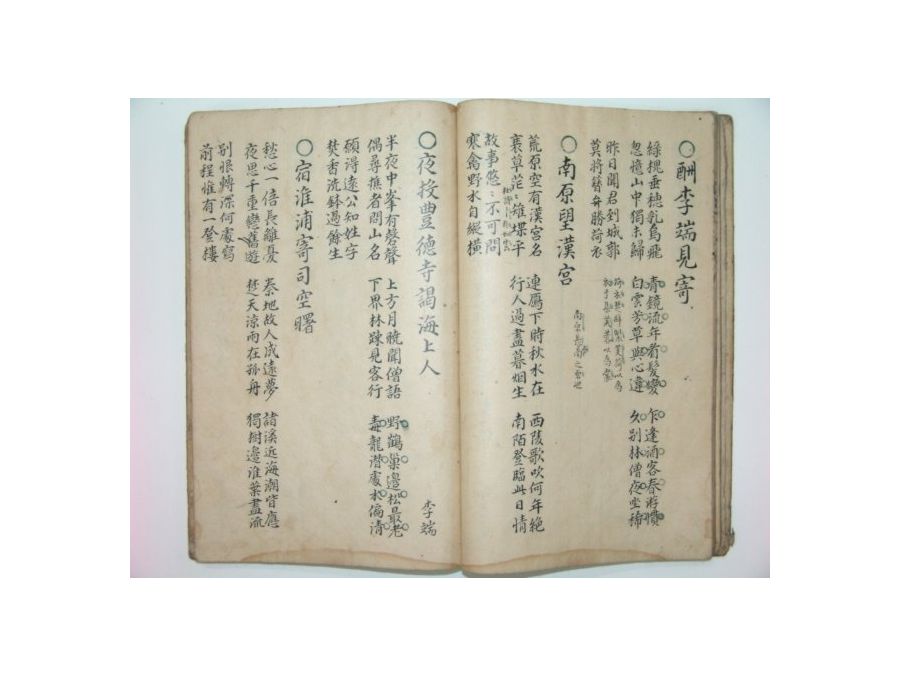 ○酬李端見寄
綠槐垂穗乳烏飛 青鏡流年看髮變 乍逢酒客春游慣
忽憶山中獨未歸 白雲芳草與心違 久別林僧夜坐稀
昨日聞君到城郭
莫將簪弁勝荷衣
○南原望漢宮
荒原空有漢宮名 連鴈下時秋水在 西陵歌吹何年絕
衰草茫〻雉堞平 行人過盡暮烟生 南陌登臨此日情
故事悠〻不可問
寒禽野水自縱橫
○夜投豊德寺謁海上人 李端
半夜中峯有磬聲 上方月曉聞僧語 野鶴巢邊松最老
偶尋樵者問山名 下界林踈見客行 毒龍潜處水偏清
願得遠公知姓字
焚香洗鉢過餘生
○宿淮浦寄司空曙
愁心一倍長離憂 秦地故人成遠夢 諸溪近海潮皆應
夜思千重戀舊遊 楚天涼雨在孤舟 獨樹邊淮葉盡流
別恨轉深何處寫
前程惟有一登樓